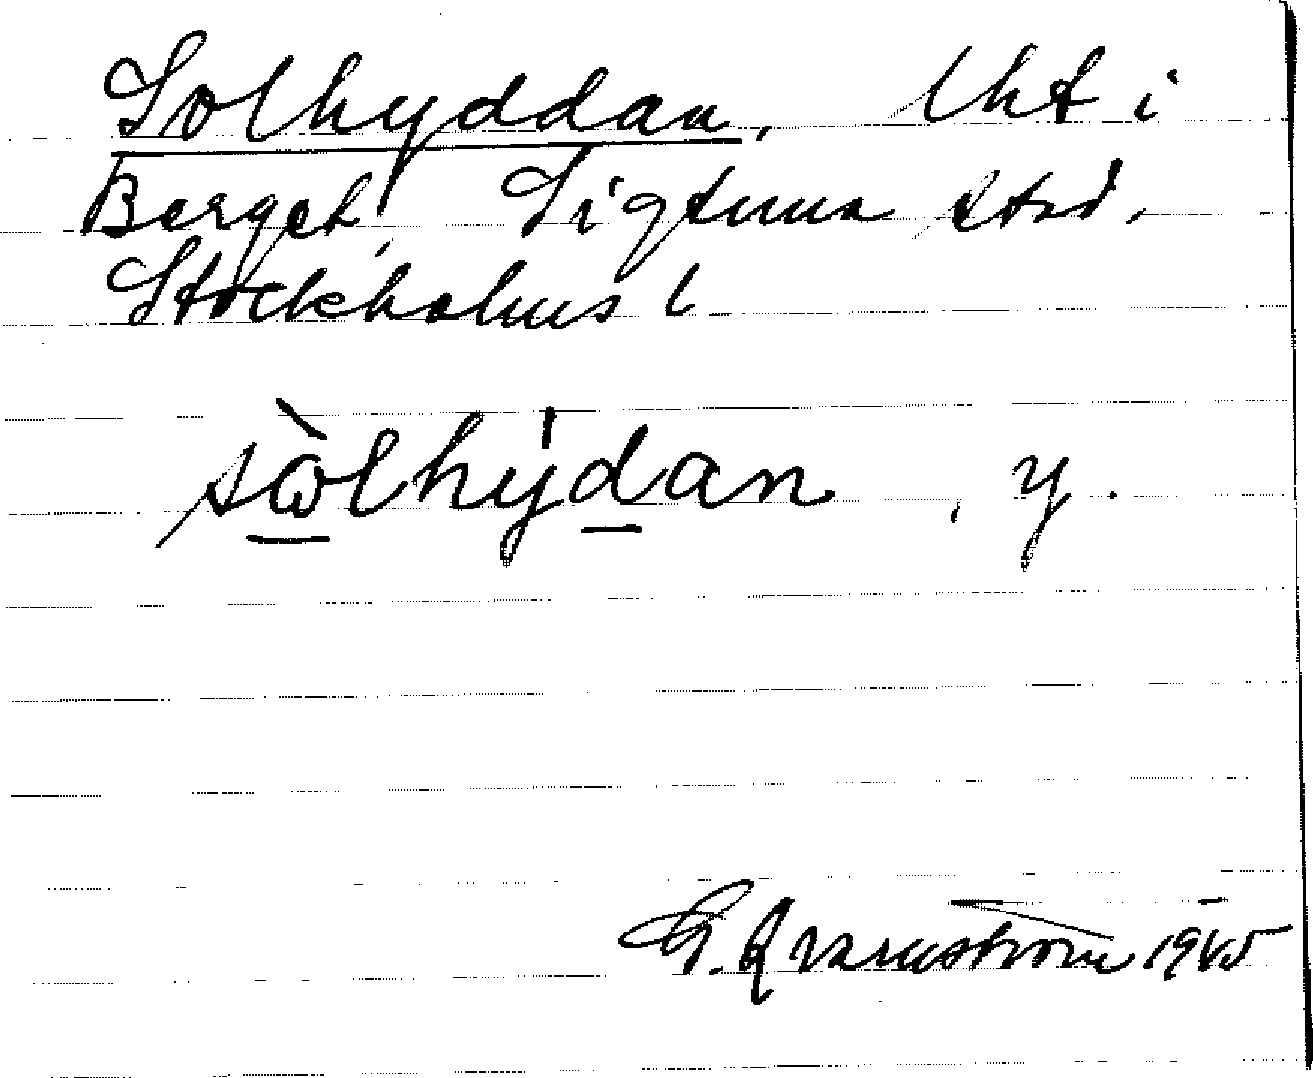 Solhyddan, lht i
Berget, Sigtuna stad,
Stockholms l
sὼlhýdan, y.
G. Qvarnström 1965